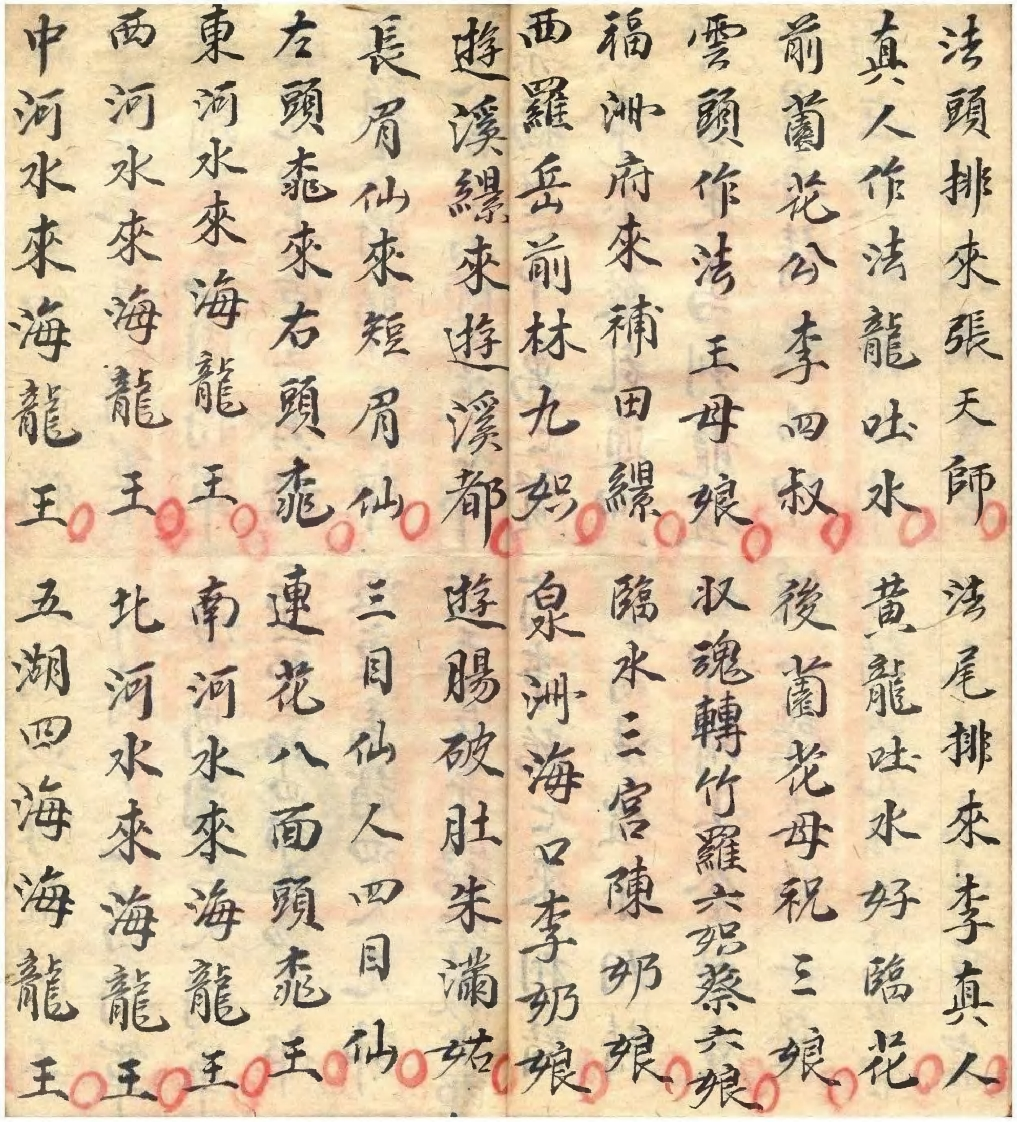 法頭排來張天師 法尾排來李真人
真人作法龍吐水 黃龍吐水好臨花
前薗花公李四叔 後薗花母祝三娘
雲頭作法王母娘 収魂轉竹羅六蔡六娘
福洲府來補田縣 臨水三宮陳奶娘
西羅岳前林九 泉洲海口李奶娘
遊溪縣來遊溪都 遊腸破肚朱滿姑
長眉仙來短眉仙 三目仙人四目仙
左頭來右頭 連花八面頭王
東河水來海龍王 南河水來海龍王
西河水來海龍王 北河水來海龍王
中河水來海龍王 五湖四海海龍王